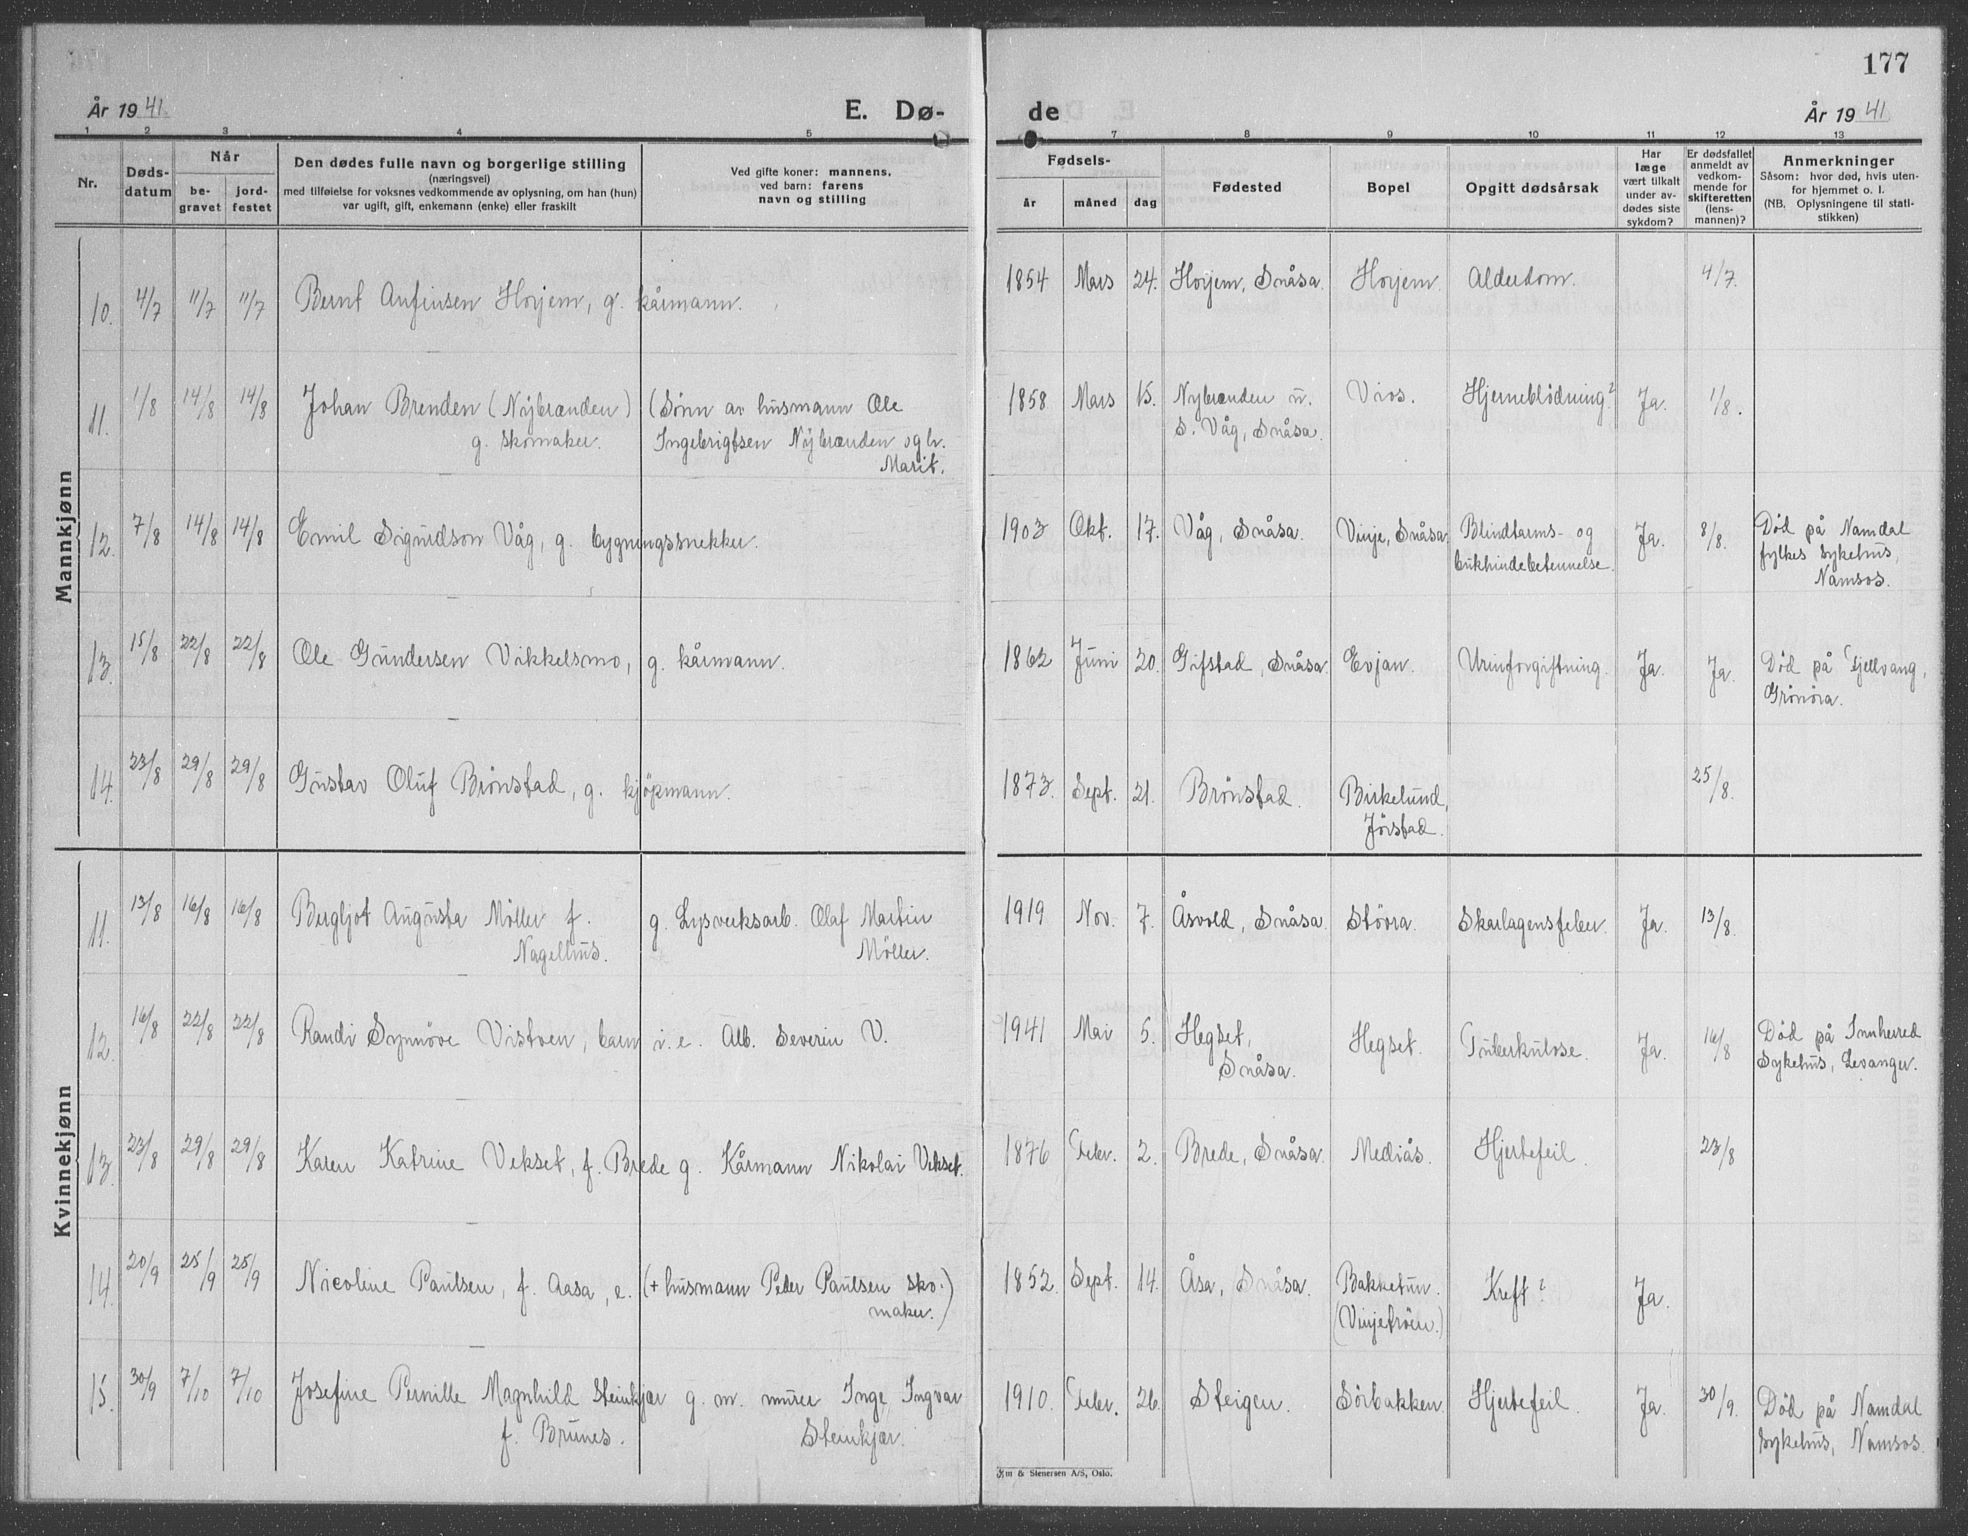 177
År 1941.
E. Dø-
de
År 1941
1 2 3 4 5 7 8 9 10 11 12 13
Nr.
Døds-
datum
Når
be-
gravet
jord-
festet
Den dødes fulle navn og borgerlige stilling
(næringsvei)
med tilføielse for voksnes vedkommende av oplysning, om han (hun)
var ugift, gift, enkemann (enke) eller fraskilt
Ved gifte koner: mannens,
ved barn: farens
navn og stilling
Fødsels-
år måned dag
Fødested
Bopel
Opgitt dødsårsak
Har
læge
vært tilkalt
under av-
dødes siste
sykdom?
Er dødsfallet
anmeldt av
vedkom-
mende for
skifteretten
(lens-
mannen)?
Anmerkninger
Såsom: hvor død, hvis uten-
for hjemmet o. l.
(NB. Oplysningene til stati-
stikken)
Mannkjønn
10. 4/7 11/7 11/7 Bernt Anfinsen Horjem, g. kårmann. 1854 Mars 24. Horjem, Snåsa. Horjem. Alderdom. 4/7.
11. 1/8 14/8 14/8 Johan Brenden (Nybrænden) (Sønn av husmann Ole 1858 Mars 15. Nybrænden u. Vios. Hjerneblødning? Ja. 1/8.
g. skomaker. Ingebrigtsen Nybrænden og h. S. Våg, Snåsa.
Marit.
12. 7/8 14/8 14/8 Emil Sigurdson Våg, g. bygningssnekker. 1903 Okt. 17. Våg, Snåsa. Vinje, Snåsa Blindtarms- og Ja. 8/8. Død på Namdal
bukhindebetennelse. fylkes sykehus,
Namsos.
13. 15/8 22/8 22/8 Ole Gundersen Vikkelsmo, g. kårmann. 1862 Juni 20. Gifstad, Snåsa. Evjan. Urinforgiftning. Ja. Ja. Død på Fjellvang,
Grönöra.
14. 23/8 29/8 29/8 Gustav Oluf Brönstad, g. kjöpmann. 1873. Sept. 21. Brönstad. Birkelund, 25/8.
Jörstad.
Kvinnekjønn
11. 13/8 16/8 16/8 Bergljot Augusta Möller f. g. Lysverksarb. Olaf Martin 1919 Nov. 7. Åsvold, Snåsa. Stövra. Skarlagensfeber. Ja. 13/8.
Nagelhus. Möller.
12. 16/8 22/8 22/8 Randi Synnöve Vistven, barn i. e. Alb. Severin V. 1941 Mai 5. Hegset, Hegset. Tuberkulose. Ja. 16/8 Död på Innherred
Snåsa. Sykehus, Levanger.
13. 23/8 29/8 29/8 Karen Katrine Vekset, f. Brede g. Kårmann Nikolai Vekset. 1876 Febr. 2. Brede, Snåsa. Mediås. Hjertefeil. 23/8
14. 20/9 25/9 25/9 Nicoline Paulsen, f. Aasa, e. (+ husmann Peder Paulsen sko- 1852. Sept. 14. Åsa, Snåsa. Bakketun. Kreft? Ja.
maker.) (Vinjetröen.)
15. 30/9 7/10 7/10 Josefine Pernille Magnhild Steinkjær g. m. murer Inge Ingvar 1910. Febr. 26. Steigen. Sörbakken. Hjertefeil. Ja. 30/9. Död på Namdal
f. Brunes. Steinkjær. Sykehus, Namsos.
& Stenersen A/S, Oslo.